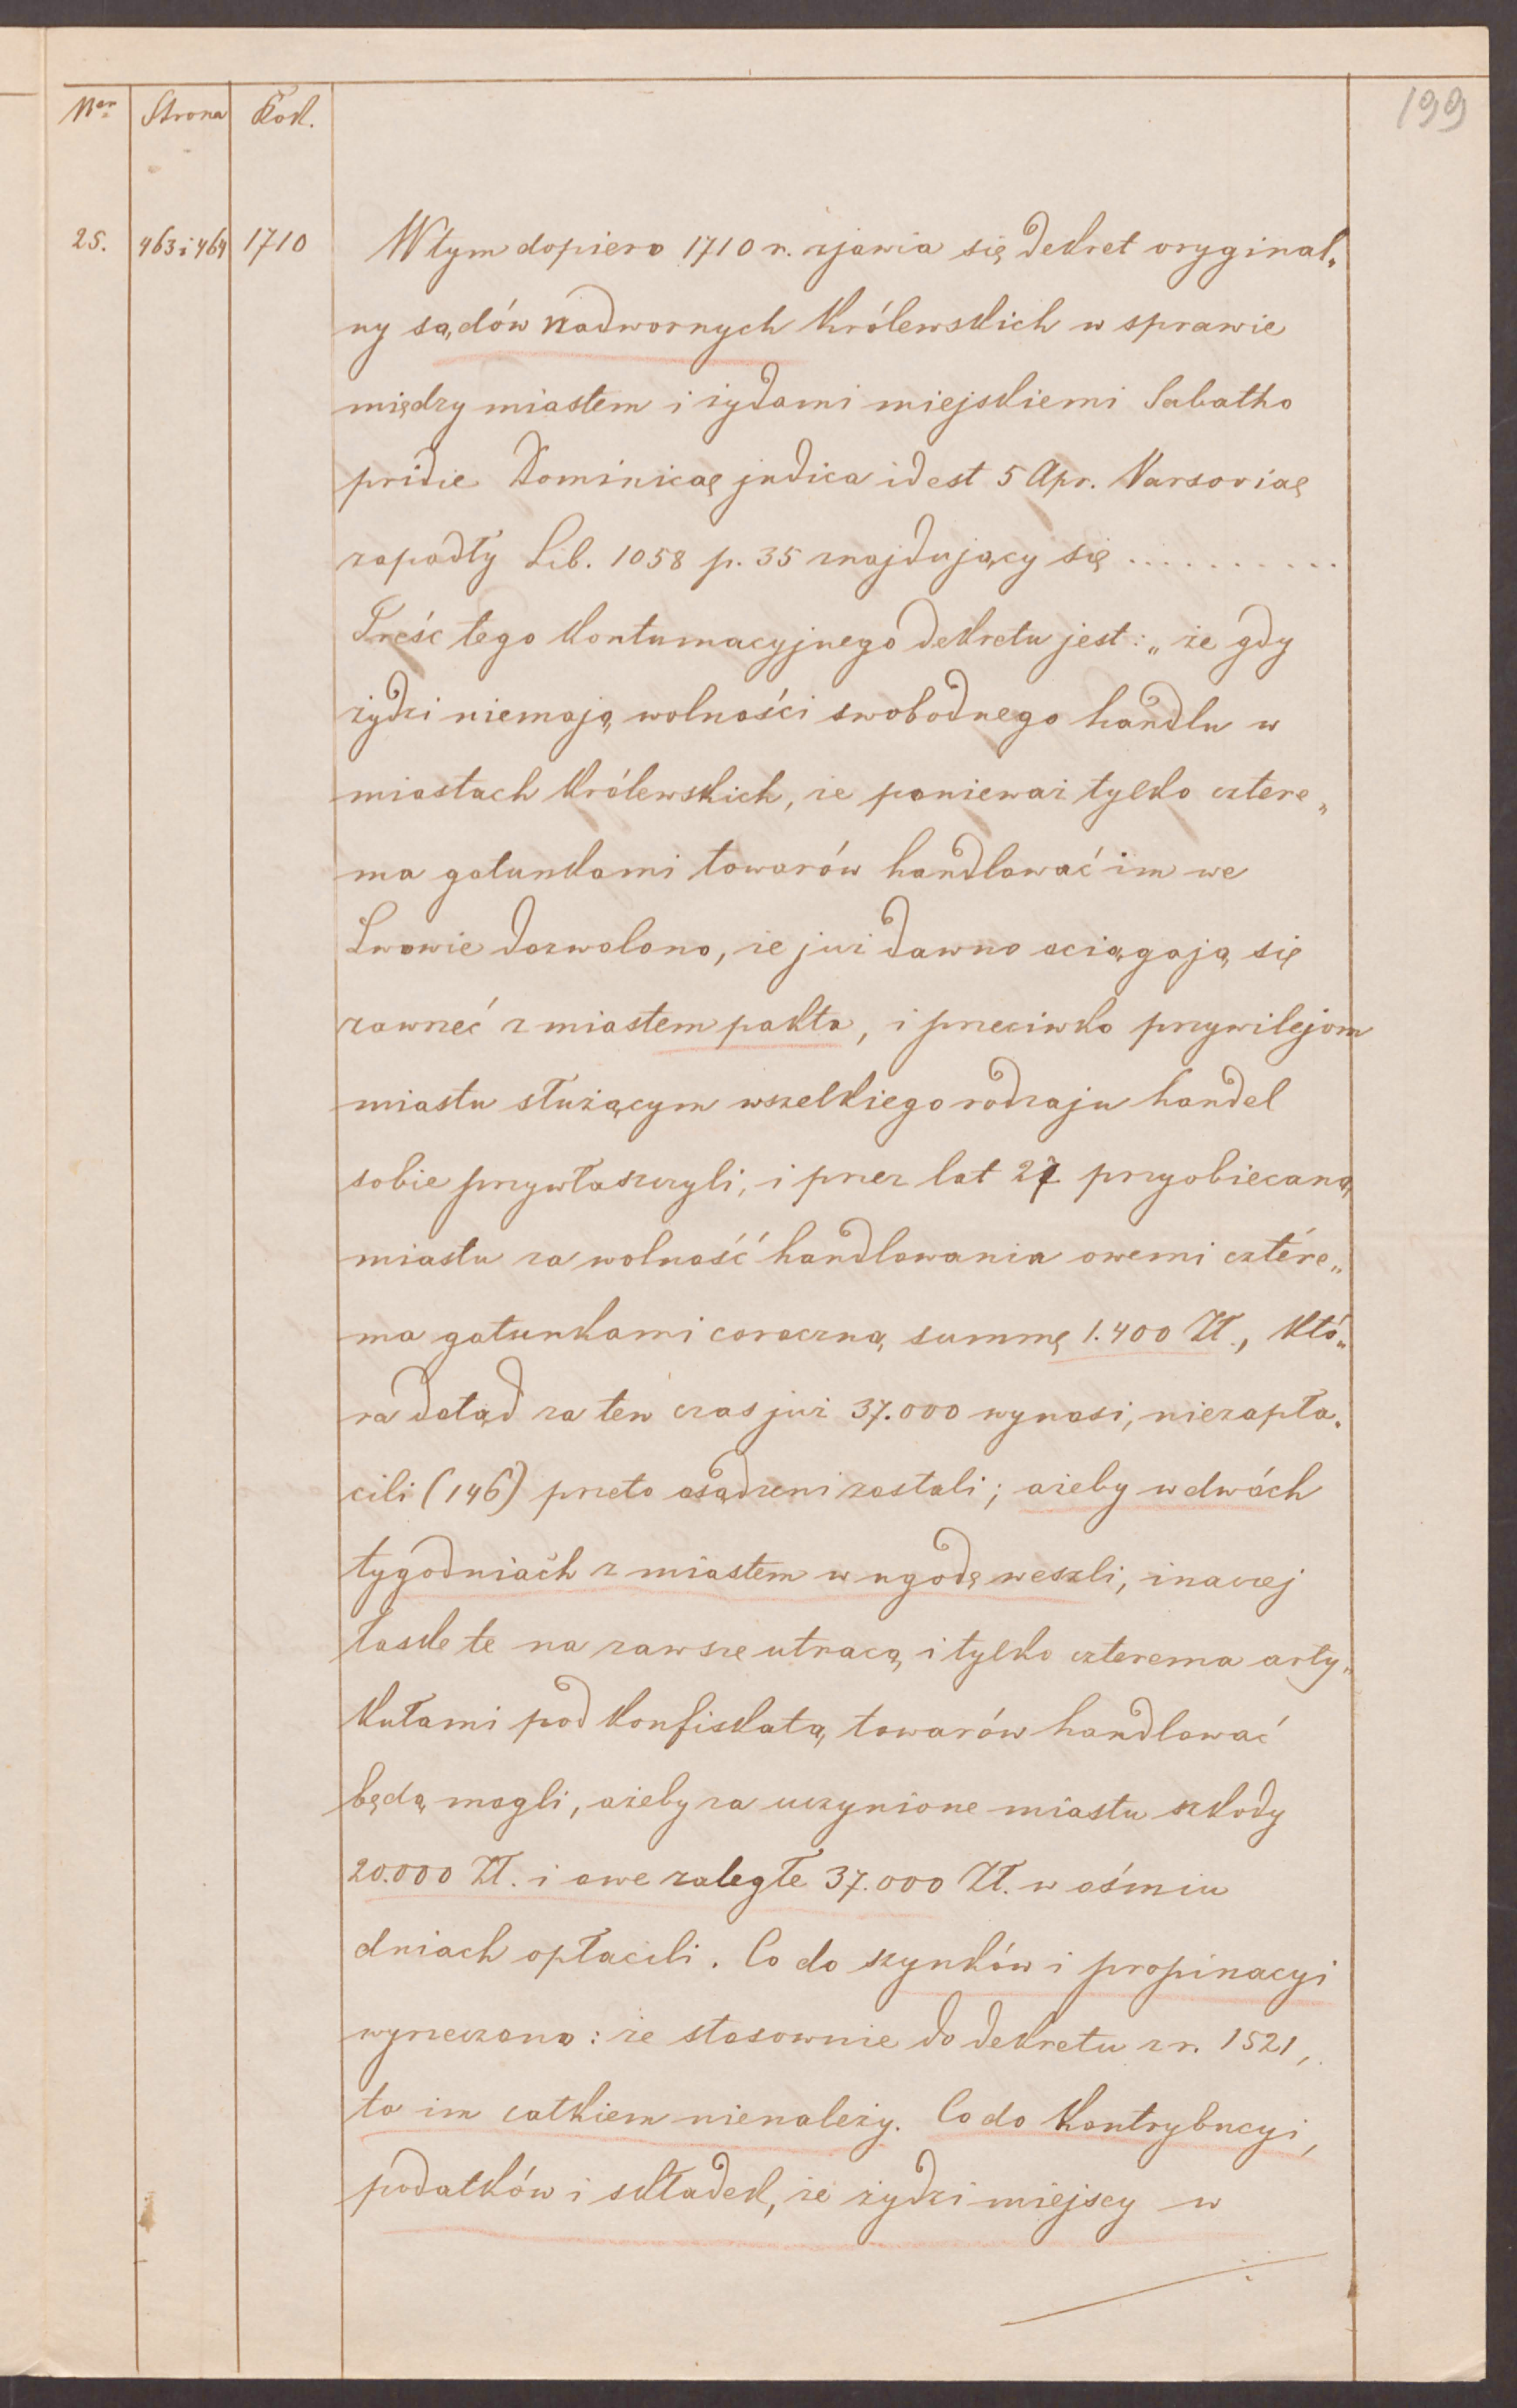 199
Ner Strona Rok.
25. 463 i 464 1710 W tym dopiero 1710 r. zjawia się dekret oryginal„
ny sądów nadwornych królewskich w sprawie
między miastem i żydami miejskiemi Sabatho
pridie Dominicae judica id est 5 Apr. Varsoviae
zapadły Lib. 1058 p. 35 znajdujący się ...........
Treść tego kontumacyjnego dekretu jest: „że gdy
żydzi niemają wolności swobodnego handlu w
miastach królewskich, że ponieważ tylko cztere„
ma gatunkami towarów handlować im we
Lwowie dozwolono, że już dawno ociągają się
zawrzeć z miastem pakta, i przeciwko przywilejom
miastu służącym wszelkiego rodzaju handel
sobie przywłaszczyli, i przez lat 27 przyobiecaną
miastu za wolność handlowania owemi cztére„
ma gatunkami coroczną summę 1.400 Zł., któ„
ra dotąd za ten czas już 37.000 wynosi, niezapła„
cili (146) przeto osądzeni zostali; ażeby w dwóch
tygodniach z miastem w ugodę weszli, inaczej
łaskę te na zawsze utracą i tylko czterema arty„
kułami pod konfiskatą towarów handlować
będą mogli, ażeby za uczynione miastu szkody
20.000 Zł. i owe zaległe 37.000 Zł. w ośmiu
dniach opłacili. Co do szynków i propinacyi
wyrzeczono: że stosownie do dekretu z r. 1521,
to im całkiem nienależy. Co do kontrybucyi,
podatków i składek, że żydzi miejscy w